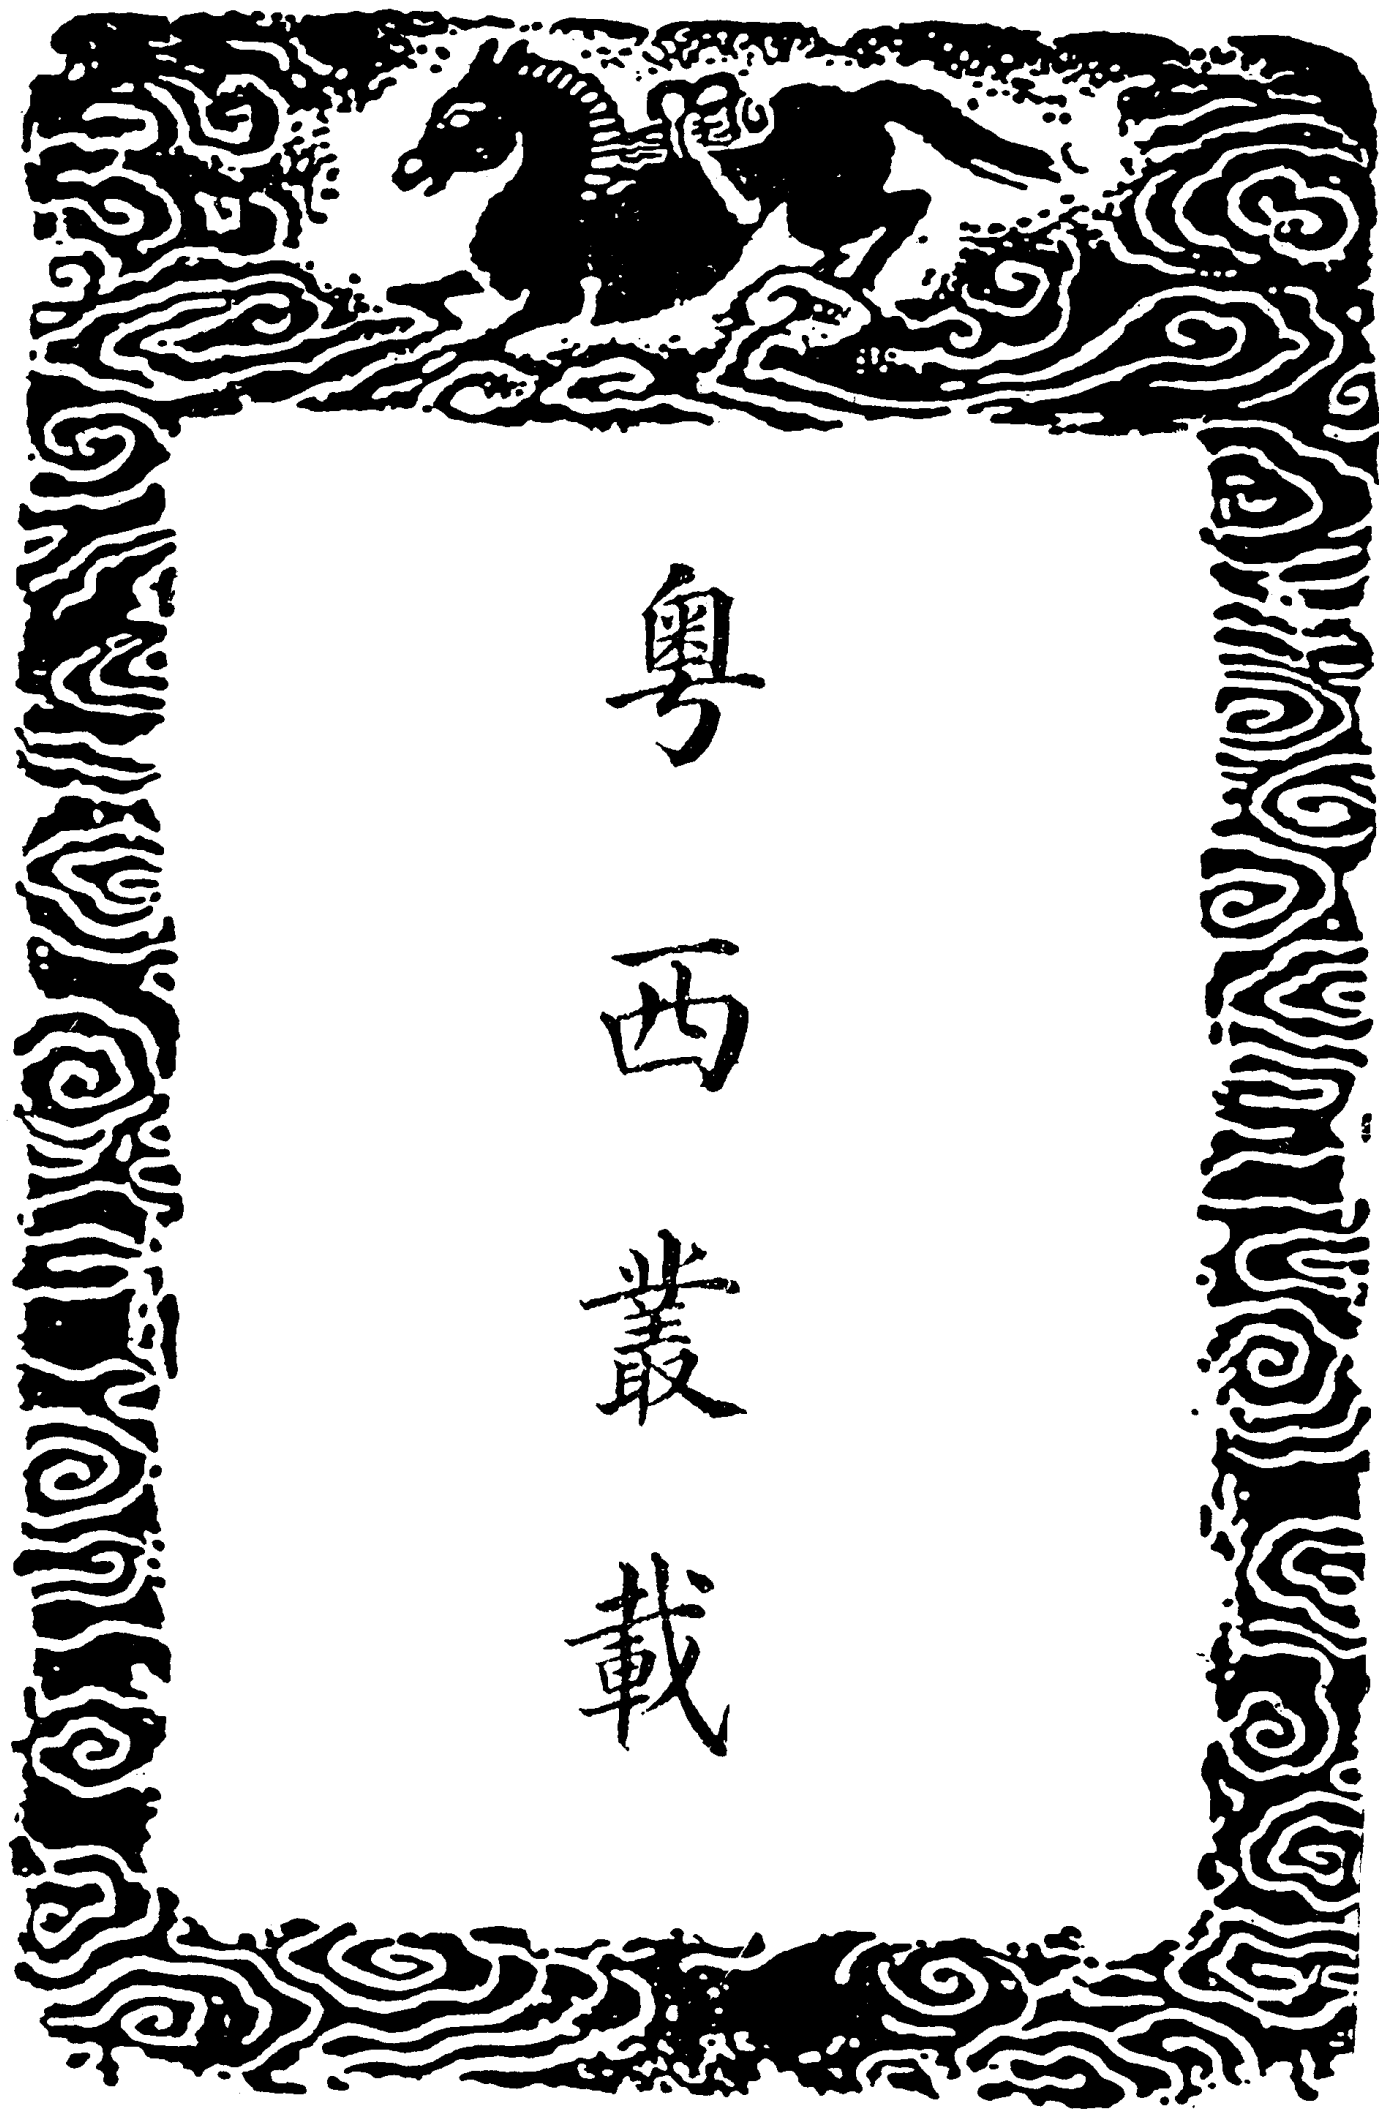 粵西叢載